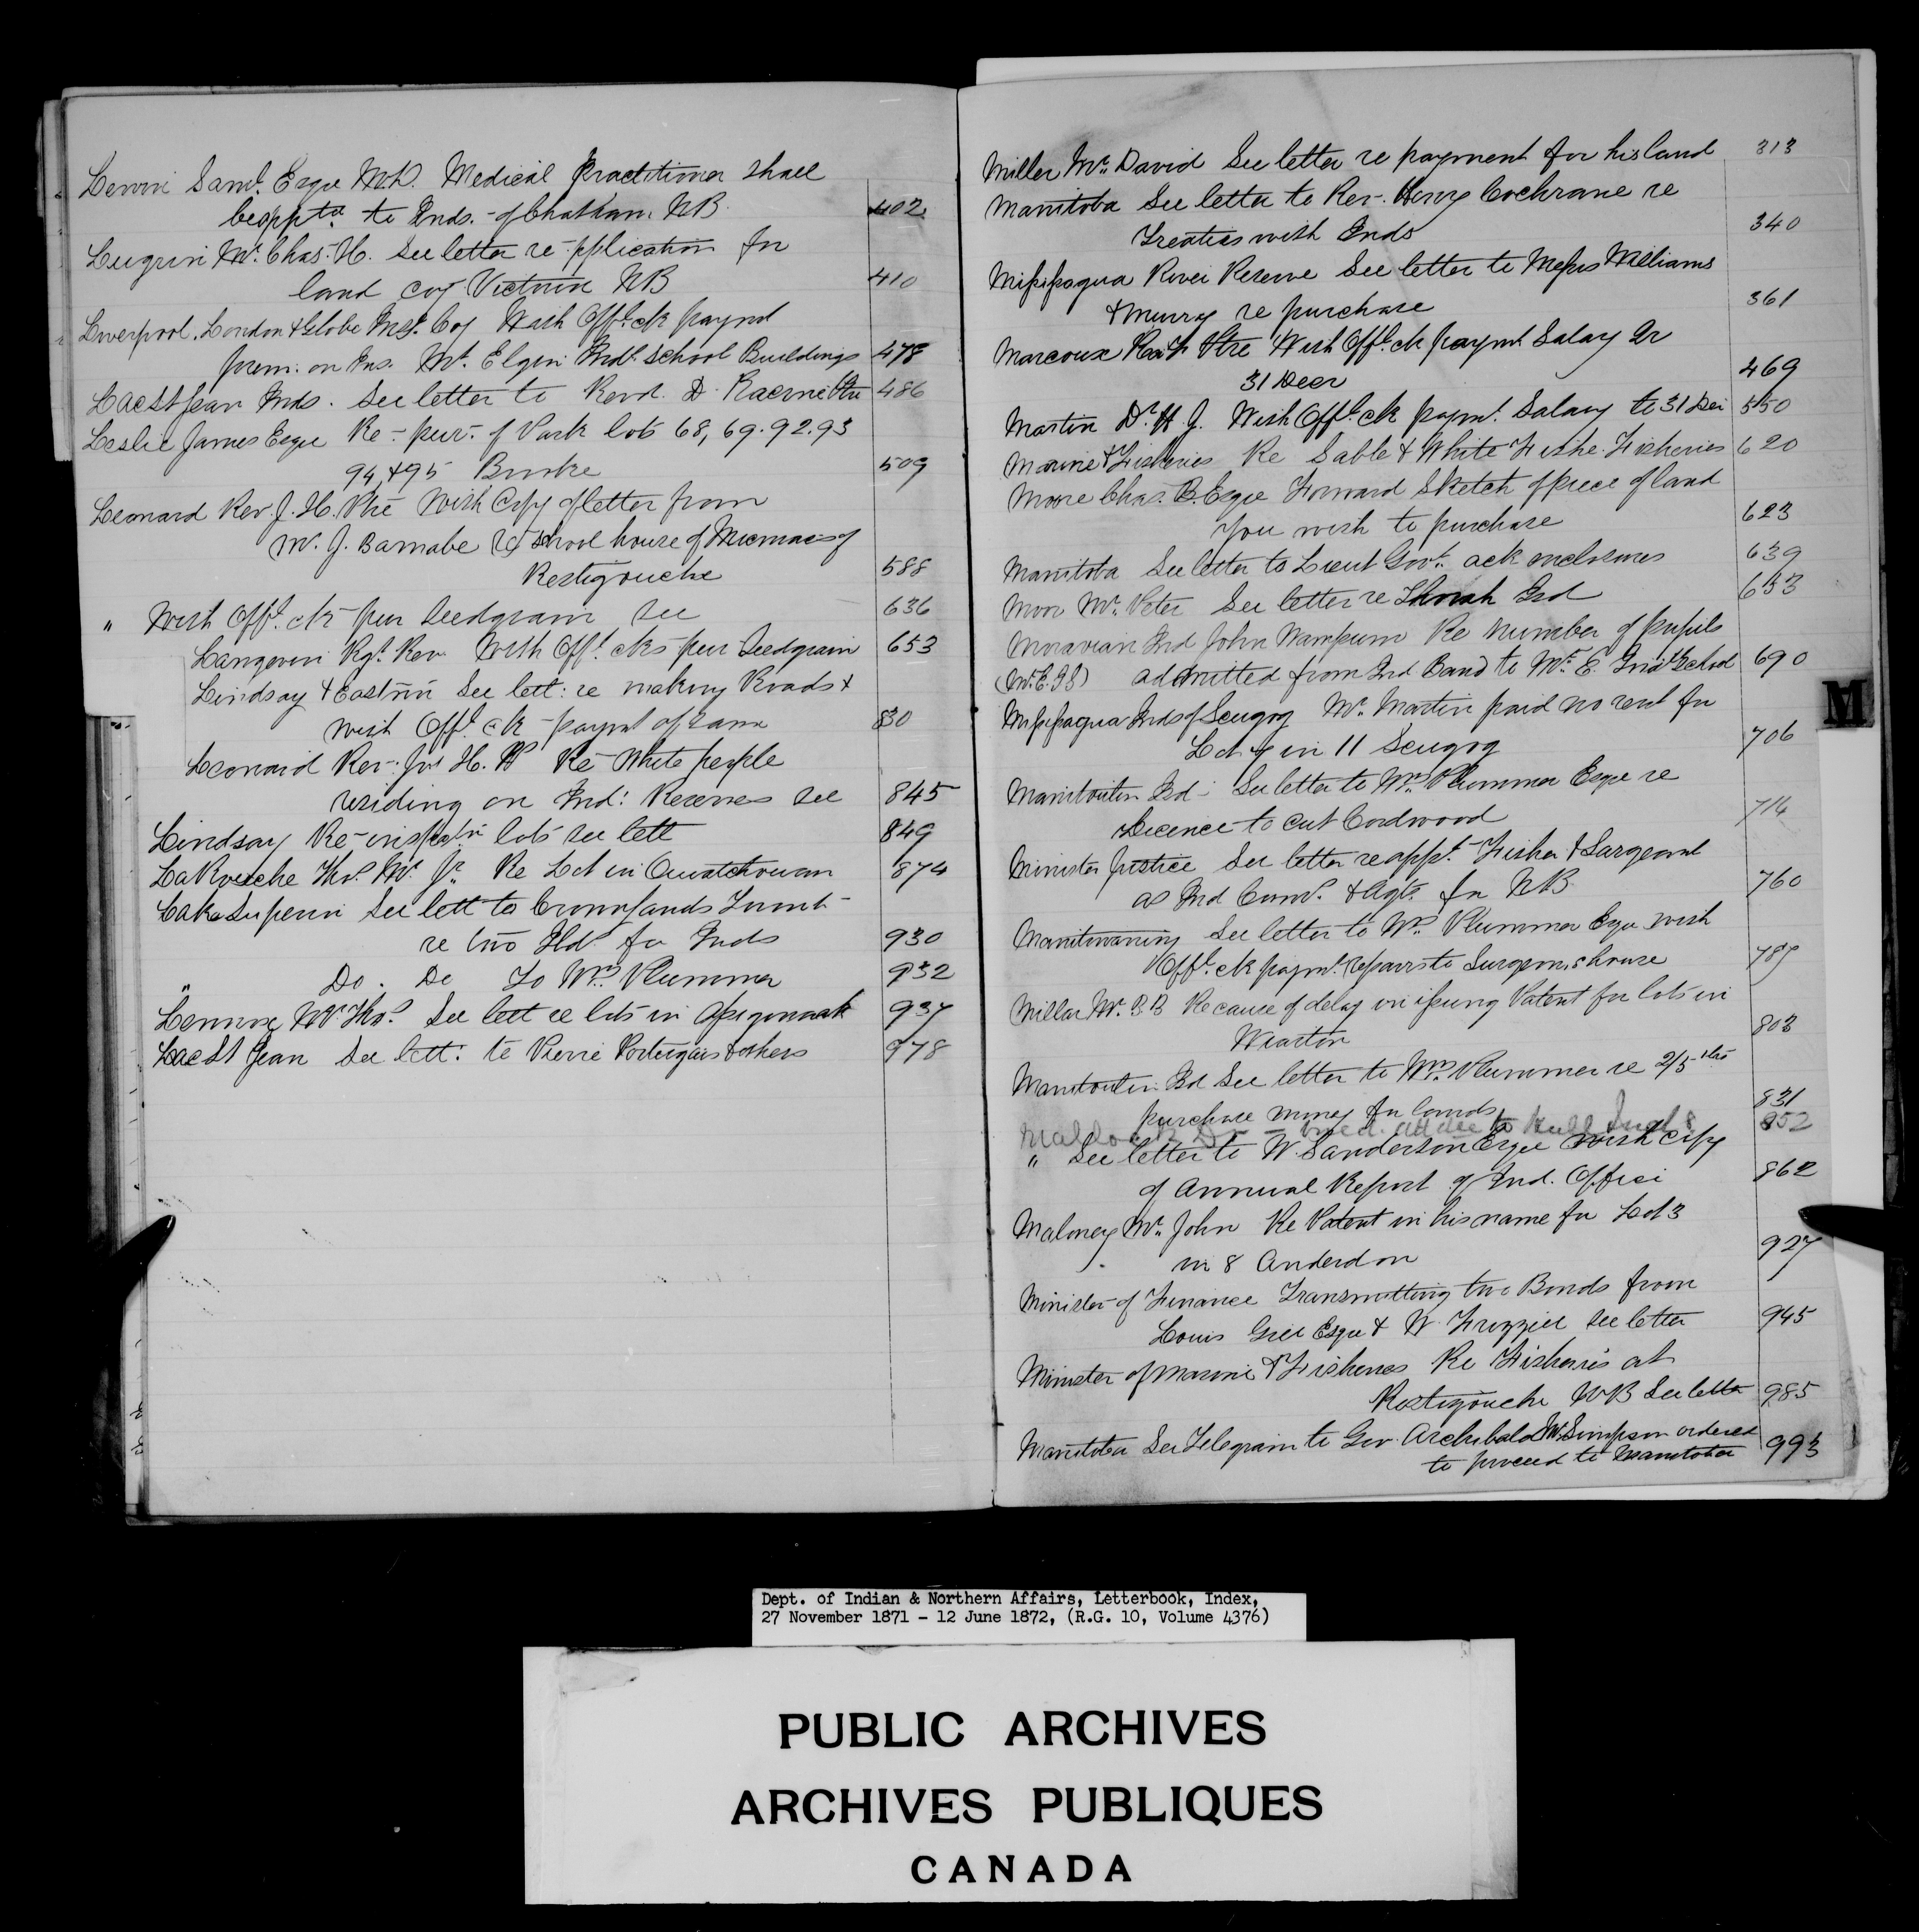 Saml. Esqr M.D. Medical Practitioner shall
be apptd. to Inds. of Chatham NB. 402
Lugrin Mr. Chas. H. See letter re application for
land coy Victoria NB 410
Liverpool. London & Globe Ins. Coy With Offl. ck paymt
prem: on Ins. Mt. Elgin Indl. School Buildings 478
Lac St Jean Inds. See letter to Revd. D. Racine Ptre 486
Leslie James Esqre Re- pur- of Park lots 68, 69. 92. 93
94 & 95 509
Leonard Rev. J. H. Ptre With Copy of letter from
Mr. J. Barnabe re School house of Micmacs of
Restigouche 588
" With Offl. ck- pur Seedgrain See 636
Langevin Rgt. Rev. With Offl. cks- pur Seedgrain 653
Lindsay & See lett: re making Roads &
with Offl. ck- paymt of same 830
Leonard Rev: Jno H. Re- White people
residing on Ind: Reserves See 845
Lindsay Re- lots see lett 849
Thos. Mr. Jr. Re Lot in Ouiatchouan 874
Lake Superior See lett to Crown Lands
re two for Inds 930
" Do. Do To Wm. Plummer 932
Lennox Mr. Thos. See lett re lots in 937
Lac St Jean See lett: to Pierre Portugais & others 978
Miller Mr. David See letter re payment for his land 313
Manitoba See letter to Rev. Henry Cochrane re
Treaties with Inds 340
Missisagua River Reserve See letter to Messrs Williams
& Murray re purchase 361
Marcoux Ptre With Offl. ck paymt Salary Qr
31 Decr 469
Martin Dr. H J. With Offl. ck paymt. Salary to 31 Dec 550
Marine & Fisheries Re Sable & White Fishe. Fisheries 620
Moore Chas. B. Esqre Forward Sketch of piece of land
you wish to purchase 623
Manitoba See letter to Lieut Govr. ack enclosures 639
Moor Mr. Peter See letter re Thorah Isd 653
Moravian Ind John Wampum Re Number of pupils
(Mt. E. I S) admitted from Ind Band to Mt. E. Indl School 690
Missisagua Inds of Scugog Mr. Martin paid no rent for
Lot 9 in 11 Scugog 706
Manitoulin Isd - See letter to Wm. Plummer Esqre re
Licence to cut Cordwood 714
Minister Justice See letter re appt. Fisher & Sargeant
as Ind Comrs. & Agts. for NB 760
Manitowaning See letter to Wm. Plummer Esqre with
Offl. ck paymt. Repairs to Surgeons house 789
Millar Mr. B. B Re cause of delay in issuing Patent for lots in
Wiarton 803
Manitoulin Isd See letter to Wm. Plummer re 2/5ths
purchase money for lands 831
Malloch Dr - Med. attdce to Inds 852
" See letter to W. Sanderson Esqre with copy
of Annual Report of Ind. Office 862
Maloney Mr. John Re Patent in his name for Lot 3
in 8 Anderdon 927
Minister of Finance Transmitting two Bonds from
Louis Gill Esqre & W. See letter 945
Minister of Marine & Fisheries Re Fisheries at
Restigouche NB See letter 985
Manitoba See Telegram to Gov. Archibald Mr. Simpson ordered
to proceed to Manitoba 993
M
Dept. of Indian & Northern Affairs, Letterbook, Index,
27 November 1871 - 12 June 1872, (R.G. 10, Volume 4376)
PUBLIC ARCHIVES
ARCHIVES PUBLIQUES
CANADA